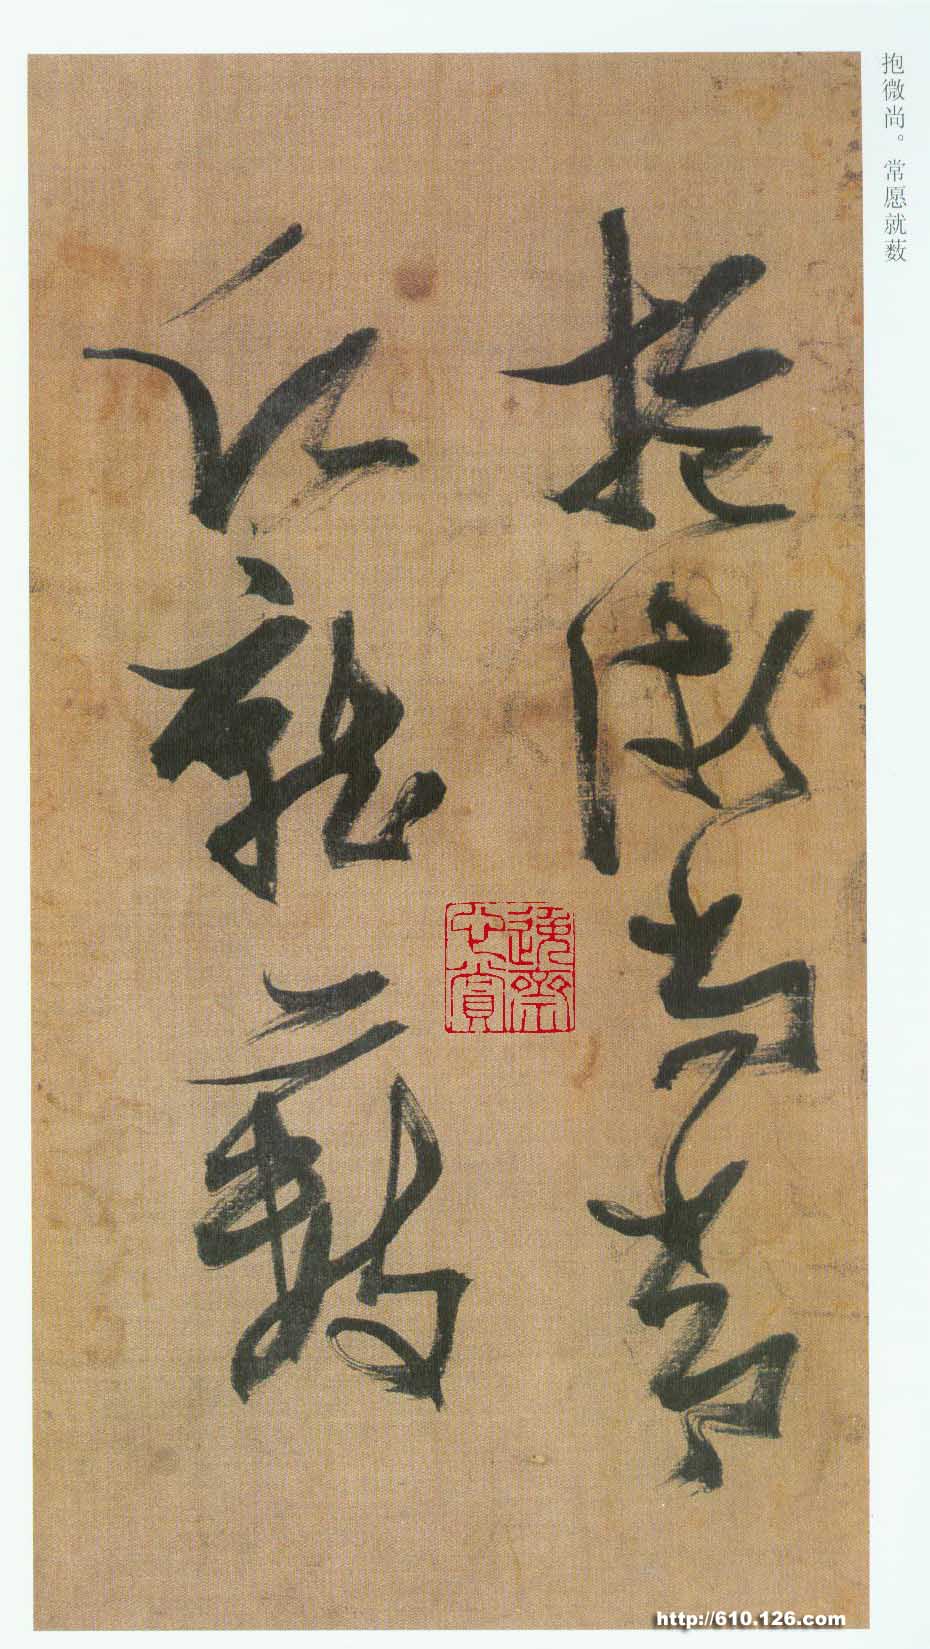 抱微尚。常愿就薮
抱微尚常
願就薮
http://610.126.com